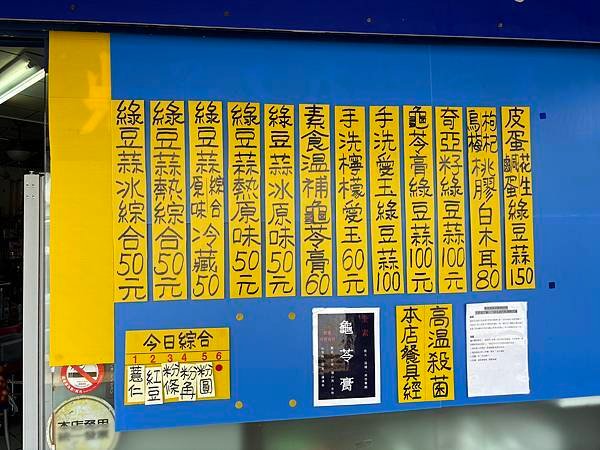 皮蛋鹹蛋花生綠豆蒜150
烏梅枸杞桃膠白木耳80
奇亞籽綠豆蒜100元
龜苓膏綠豆蒜100元
手洗愛玉綠豆蒜100
手洗檸檬愛玉60元
素食溫補龜苓膏60
綠豆蒜冰原味50元
綠豆蒜熱原味50元
綠豆蒜原味綜合冷藏50
綠豆蒜熱綜合50元
綠豆蒜冰綜合50元
今日綜合
1 2 3 4 5 6
薏仁
紅豆
粉條
粉角
粉圓
龜苓膏
本店餐具經
高溫殺菌